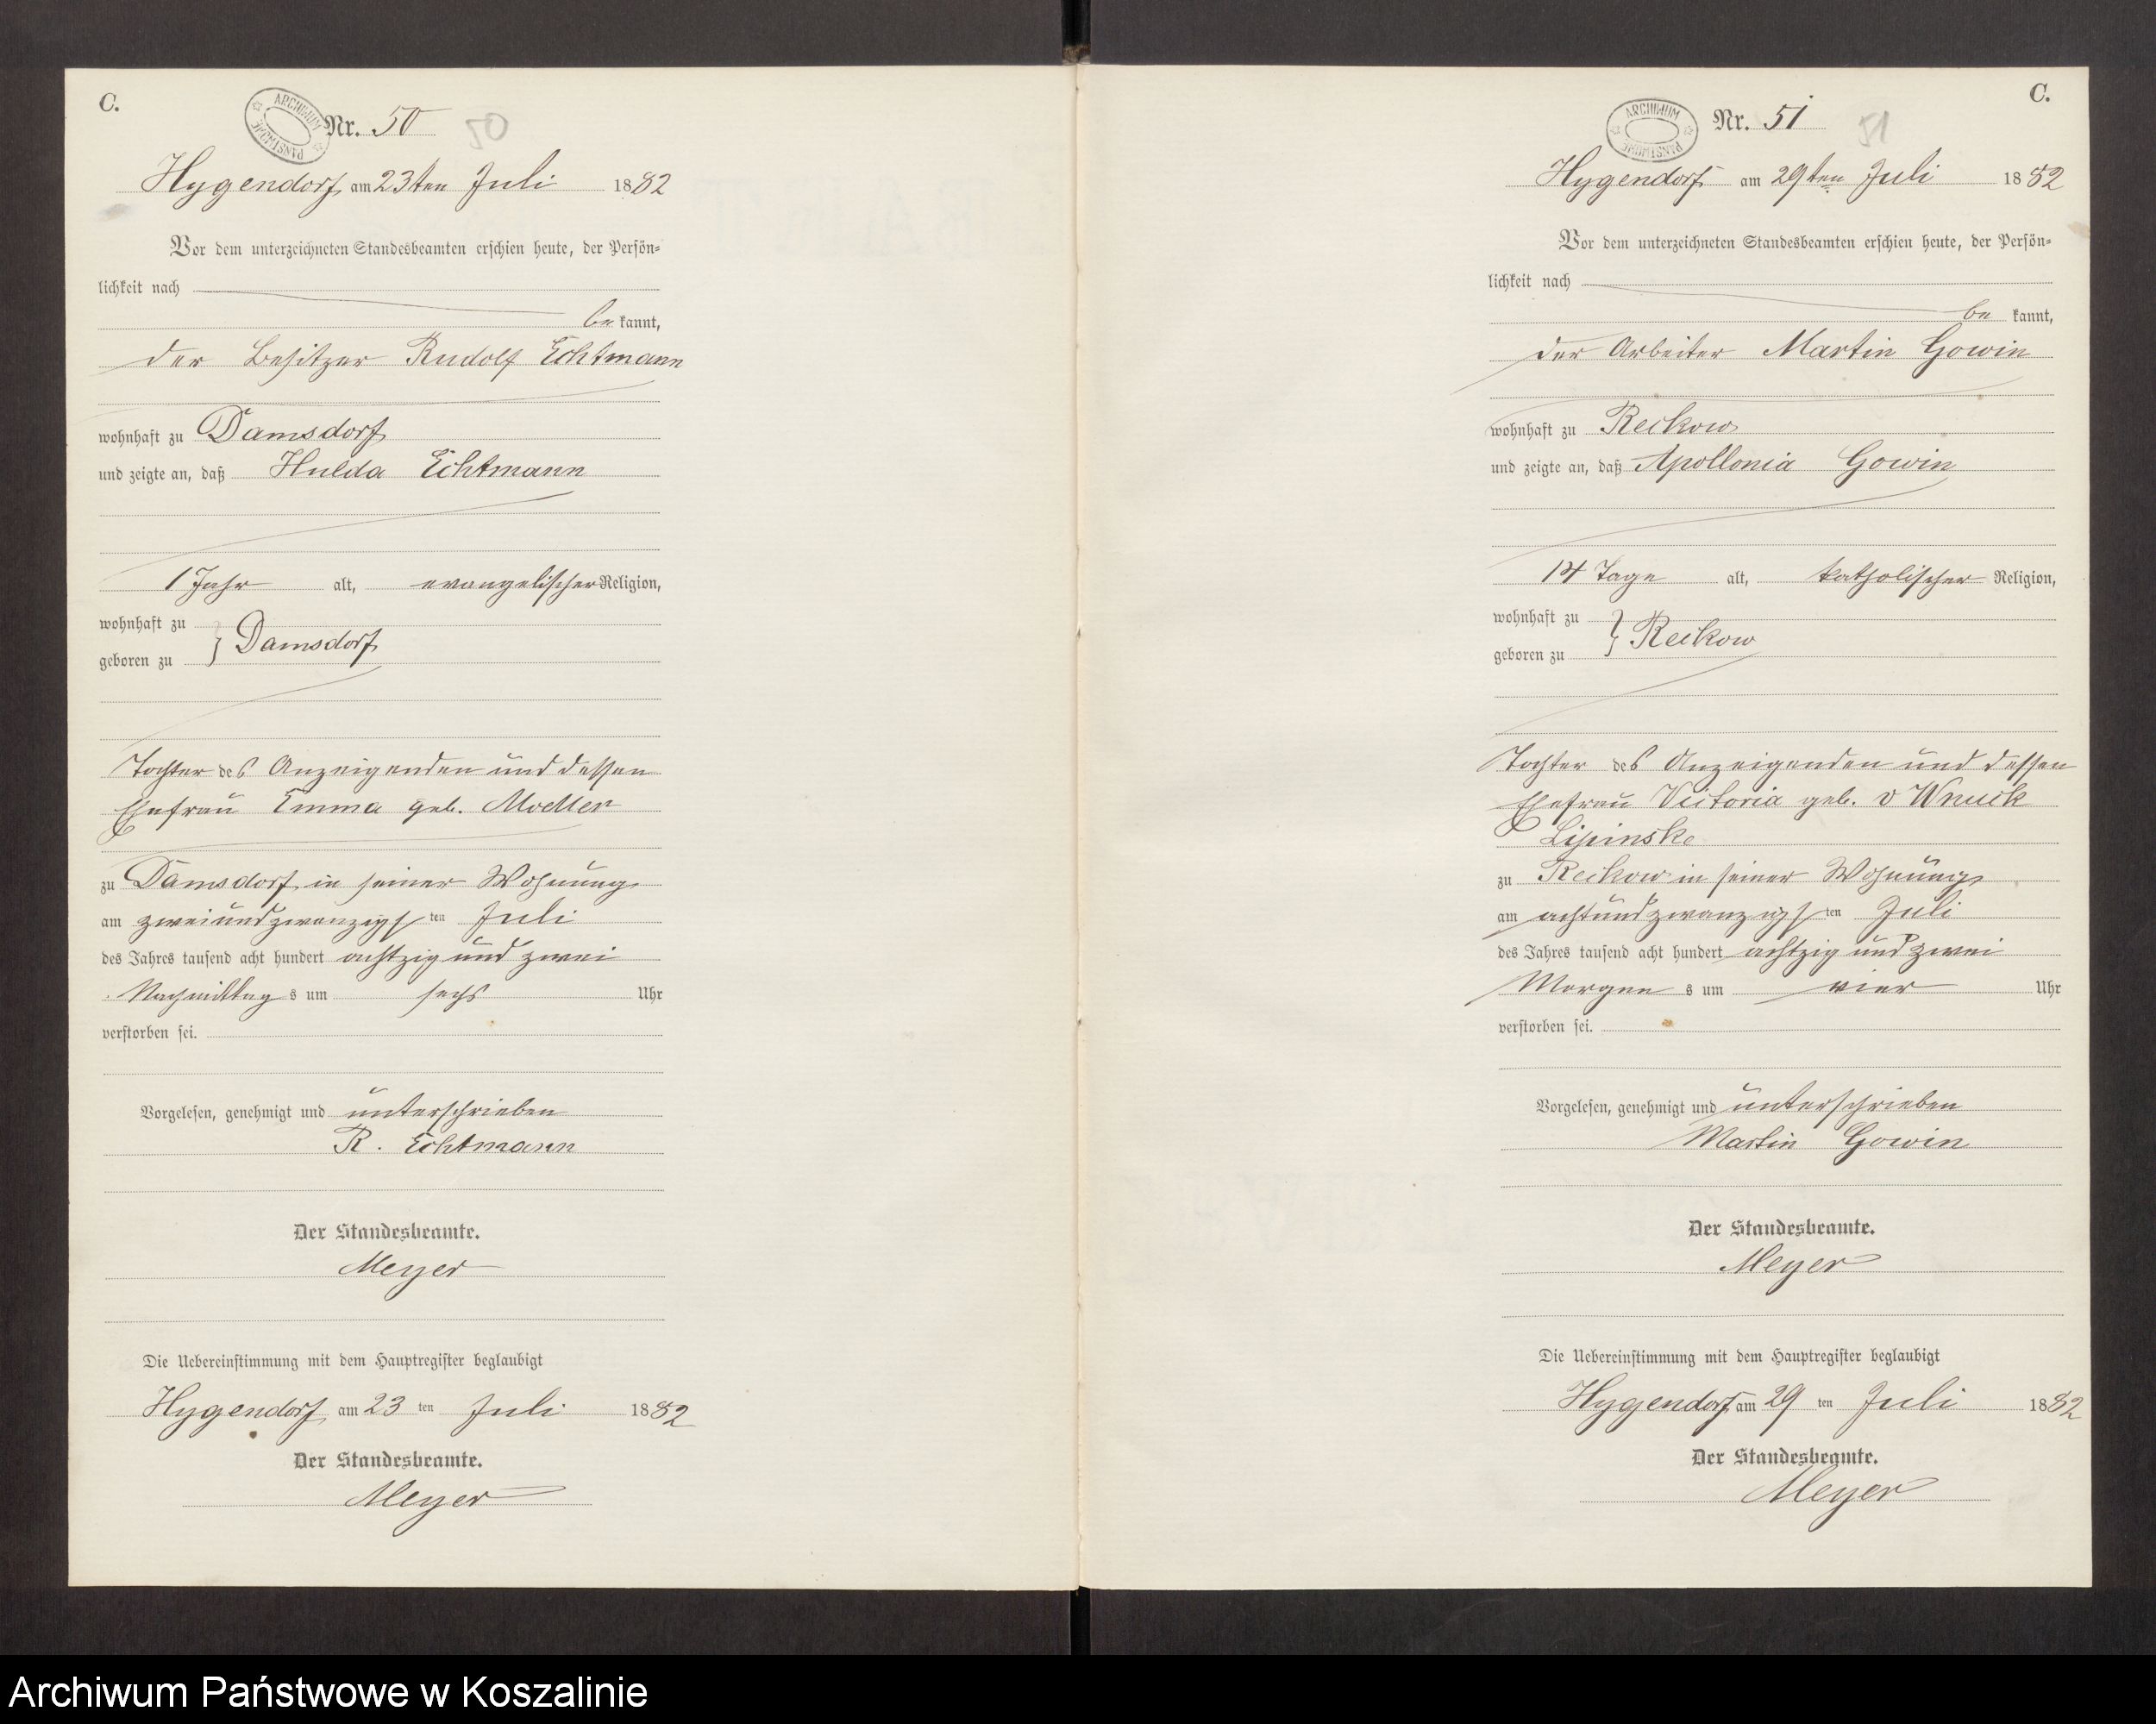 C.
ARCHIWUM PAŃSTWOWE
Nr. 50
50
Hygendorf am 23ten Juli 1882
Vor dem unterzeichneten Standesbeamten erschien heute, der Persön-
lichkeit nach
be kannt,
der Besitzer Rudolf Echtmann
wohnhaft zu Damsdorf
und zeigte an, daß Hulda Echtmann
1 Jahr alt, evangelischer Religion,
wohnhaft zu
geboren zu } Damsdorf
Tochter des Anzeigenden und dessen
Ehefrau Emma geb. Moeller
zu Damsdorf in seiner Wohnung
am zweiundzwanzigsten Juli
des Jahres tausend acht hundert achtzig und zwei
Nachmittags um sechs Uhr
verstorben sei.
Vorgelesen, genehmigt und unterschrieben
R. Echtmann
Der Standesbeamte.
Meyer
Die Uebereinstimmung mit dem Hauptregister beglaubigt
Hygendorf am 23 ten Juli 1882
Der Standesbeamte.
Meyer
C.
ARCHIWUM PAŃSTWOWE
Nr. 51
51
Hygendorf am 29ten Juli 1882
Vor dem unterzeichneten Standesbeamten erschien heute, der Persön-
lichkeit nach
be kannt,
der Arbeiter Martin Gowin
wohnhaft zu Reckow
und zeigte an, daß Apollonia Gowin
14 Tage alt, katholischer Religion,
wohnhaft zu
geboren zu } Reckow
Tochter des Anzeigenden und dessen
Ehefrau Victoria geb. v Wnuck
Lipinske
zu Reckow in seiner Wohnung
am achtundzwanzigsten Juli
des Jahres tausend acht hundert achtzig und zwei
Morgens um vier Uhr
verstorben sei.
Vorgelesen, genehmigt und unterschrieben
Martin Gowin
Der Standesbeamte.
Meyer
Die Uebereinstimmung mit dem Hauptregister beglaubigt
Hygendorf am 29 ten Juli 1882
Der Standesbeamte.
Meyer
Archiwum Państwowe w Koszalinie